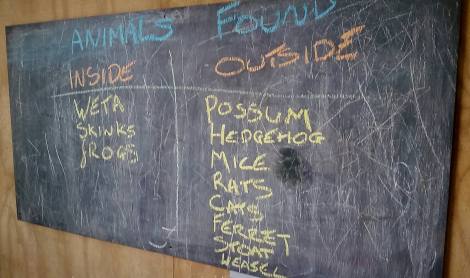 ANIMALS FOUND
INSIDE
WETA
SKINKS
FROGS
OUTSIDE
POSSUM
HEDGEHOG
MICE
RATS
CATS
FERRET
STOAT
WEASEL